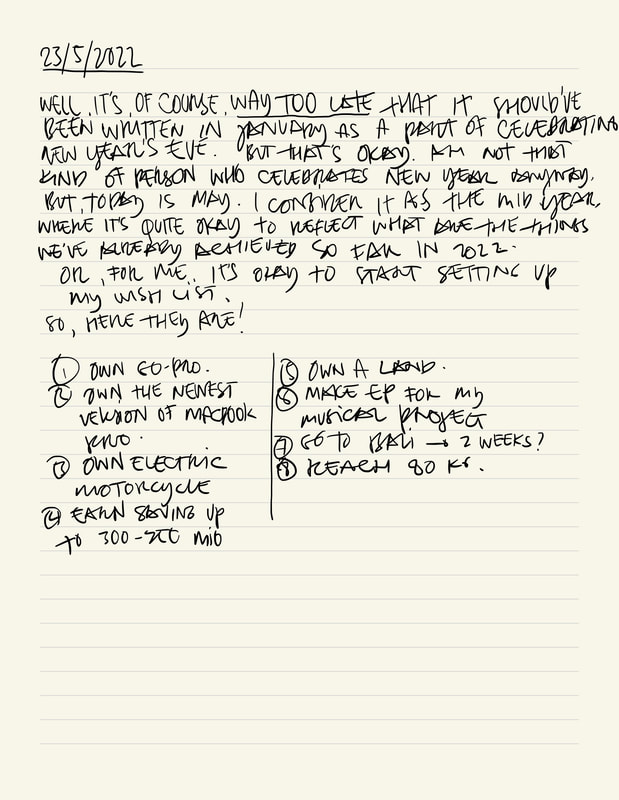 23/5/2022
WELL, IT'S, OF COURSE, WAY TOO LATE THAT IT SHOULD'VE
BEEN WRITTEN IN JANUARY AS A PART OF CELEBRATING
NEW YEAR'S EVE. BUT THAT'S OKAY. AM NOT THAT
KIND OF PERSON WHO CELEBRATES NEW YEAR ANYWAY.
BUT, TODAY IS MAY. I CONSIDER IT AS THE MID YEAR
WHERE IT'S QUITE OKAY TO REFLECT WHAT ARE THE THINGS
WE'VE ALREADY ACHIEVED SO FAR IN 2022.
OR, FOR ME, IT'S OKAY TO START SETTING UP
MY WISH LIST.
SO, HERE THEY ARE!
① OWN GO-PRO.
② OWN THE NEWEST
VERSION OF MACBOOK
PRO.
③ OWN ELECTRIC
MOTORCYCLE
④ EARN SAVING UP
TO 300 - MIO
⑤ OWN A LAND.
⑥ MAKE EP FOR MY
MUSICAL PROJECT
⑦ GO TO BALI → 2 WEEKS?
⑧ REACH 80 KG.